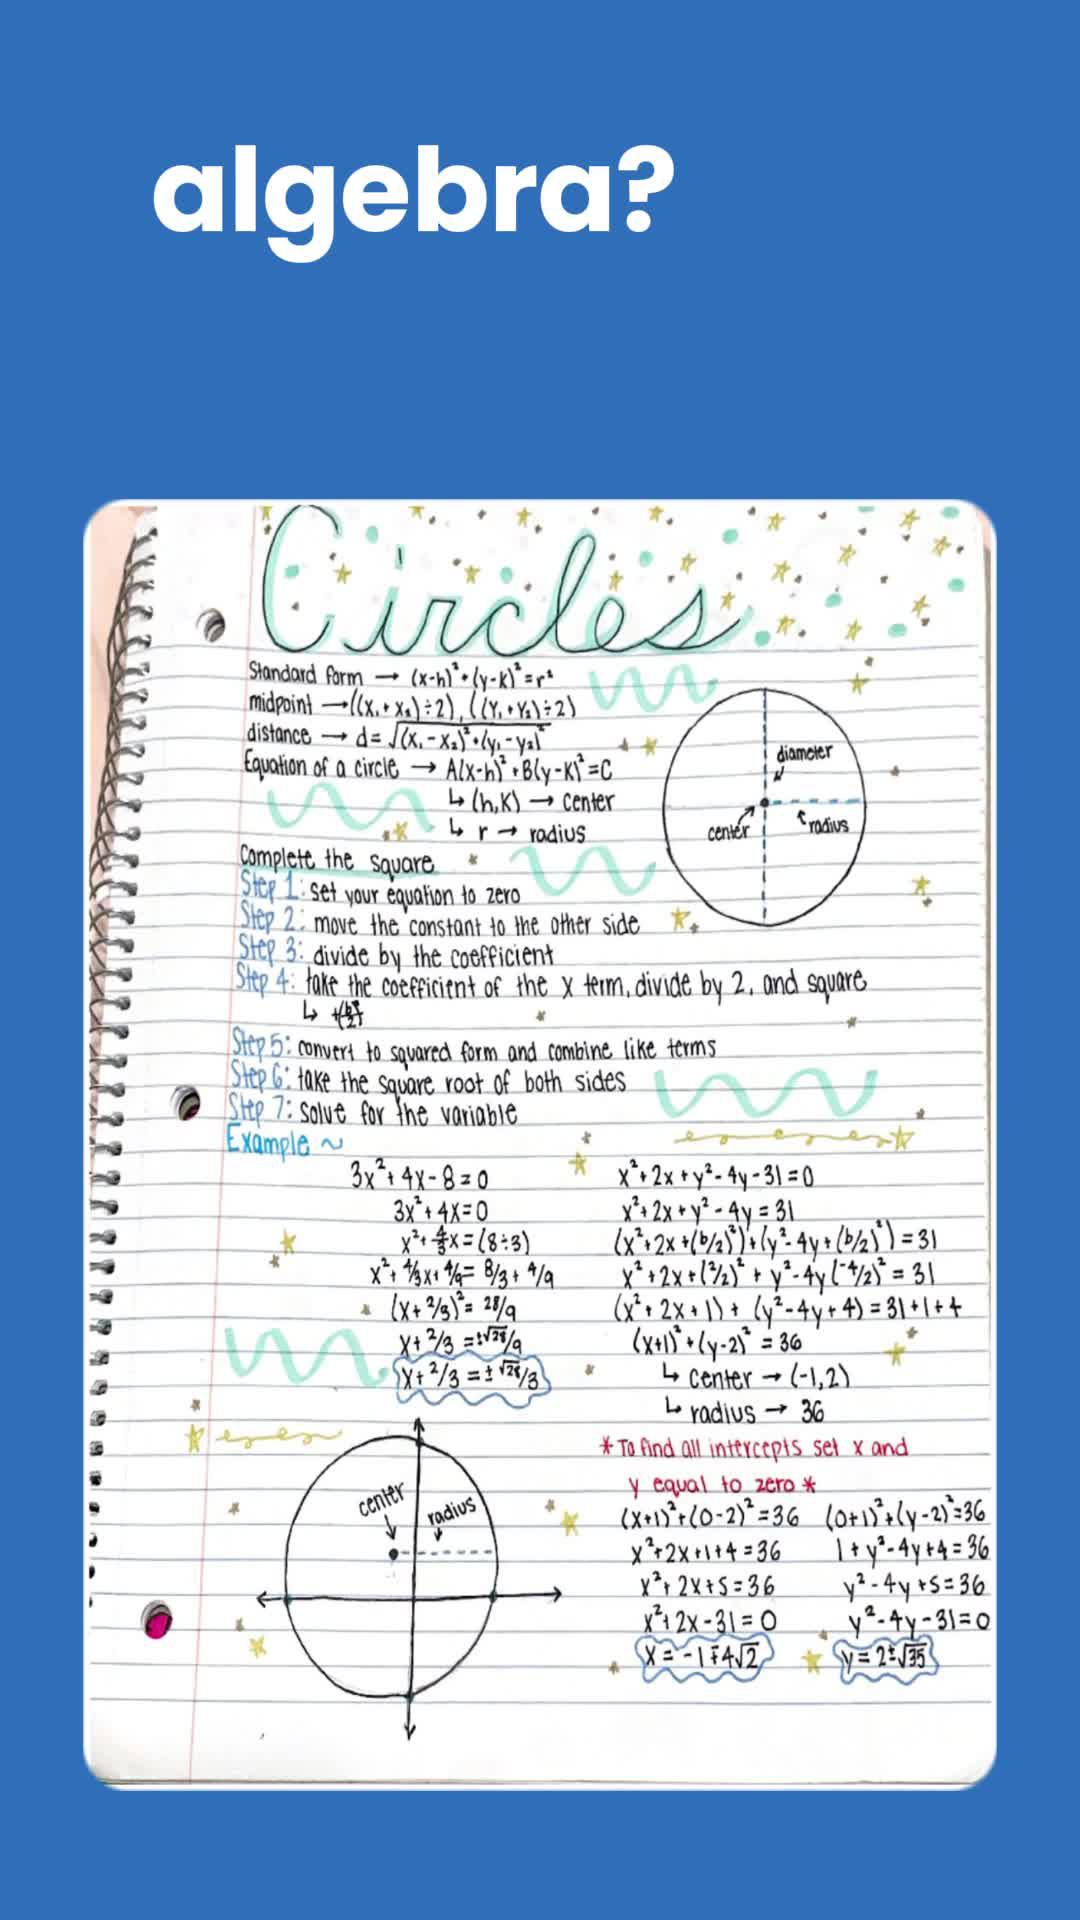 algebra?
Circles
Standard form → (x-h)²+(y-k)²=r²
midpoint →((x₁+x₂)÷2),((y₁+y₂)÷2)
distance → d=√(x₁-x₂)²+(y₁-y₂)²
Equation of a circle → A(x-h)²+B(y-k)²=C
↳ (h,k) → center
↳ r → radius
diameter
center
radius
Complete the square
Step 1: set your equation to zero
Step 2: move the constant to the other side
Step 3: divide by the coefficient
Step 4: take the coefficient of the x term, divide by 2, and square
↳ +(b/2)²
Step 5: convert to squared form and combine like terms
Step 6: take the square root of both sides
Step 7: solve for the variable
Example ~
3x²+4x-8=0
3x²+4x=0
x²+4/3x=(8÷3)
x²+4/3x+4/9=8/3+4/9
(x+2/3)²=28/9
x+2/3=±√28/9
x+2/3=±√28/3
x²+2x+y²-4y-31=0
x²+2x+y²-4y=31
(x²+2x+(b/2)²)+(y²-4y+(b/2)²)=31
x²+2x+(2/2)²+y²-4y(-4/2)²=31
(x²+2x+1)+(y²-4y+4)=31+1+4
(x+1)²+(y-2)²=36
↳ center → (-1,2)
↳ radius → 36
*To find all intercepts set x and
y equal to zero*
(x+1)²+(0-2)²=36
x²+2x+1+4=36
x²+2x+5=36
x²+2x-31=0
x=-1∓4√2
(0+1)²+(y-2)²=36
1+y²-4y+4=36
y²-4y+5=36
y²-4y-31=0
y=2±√35
center
radius